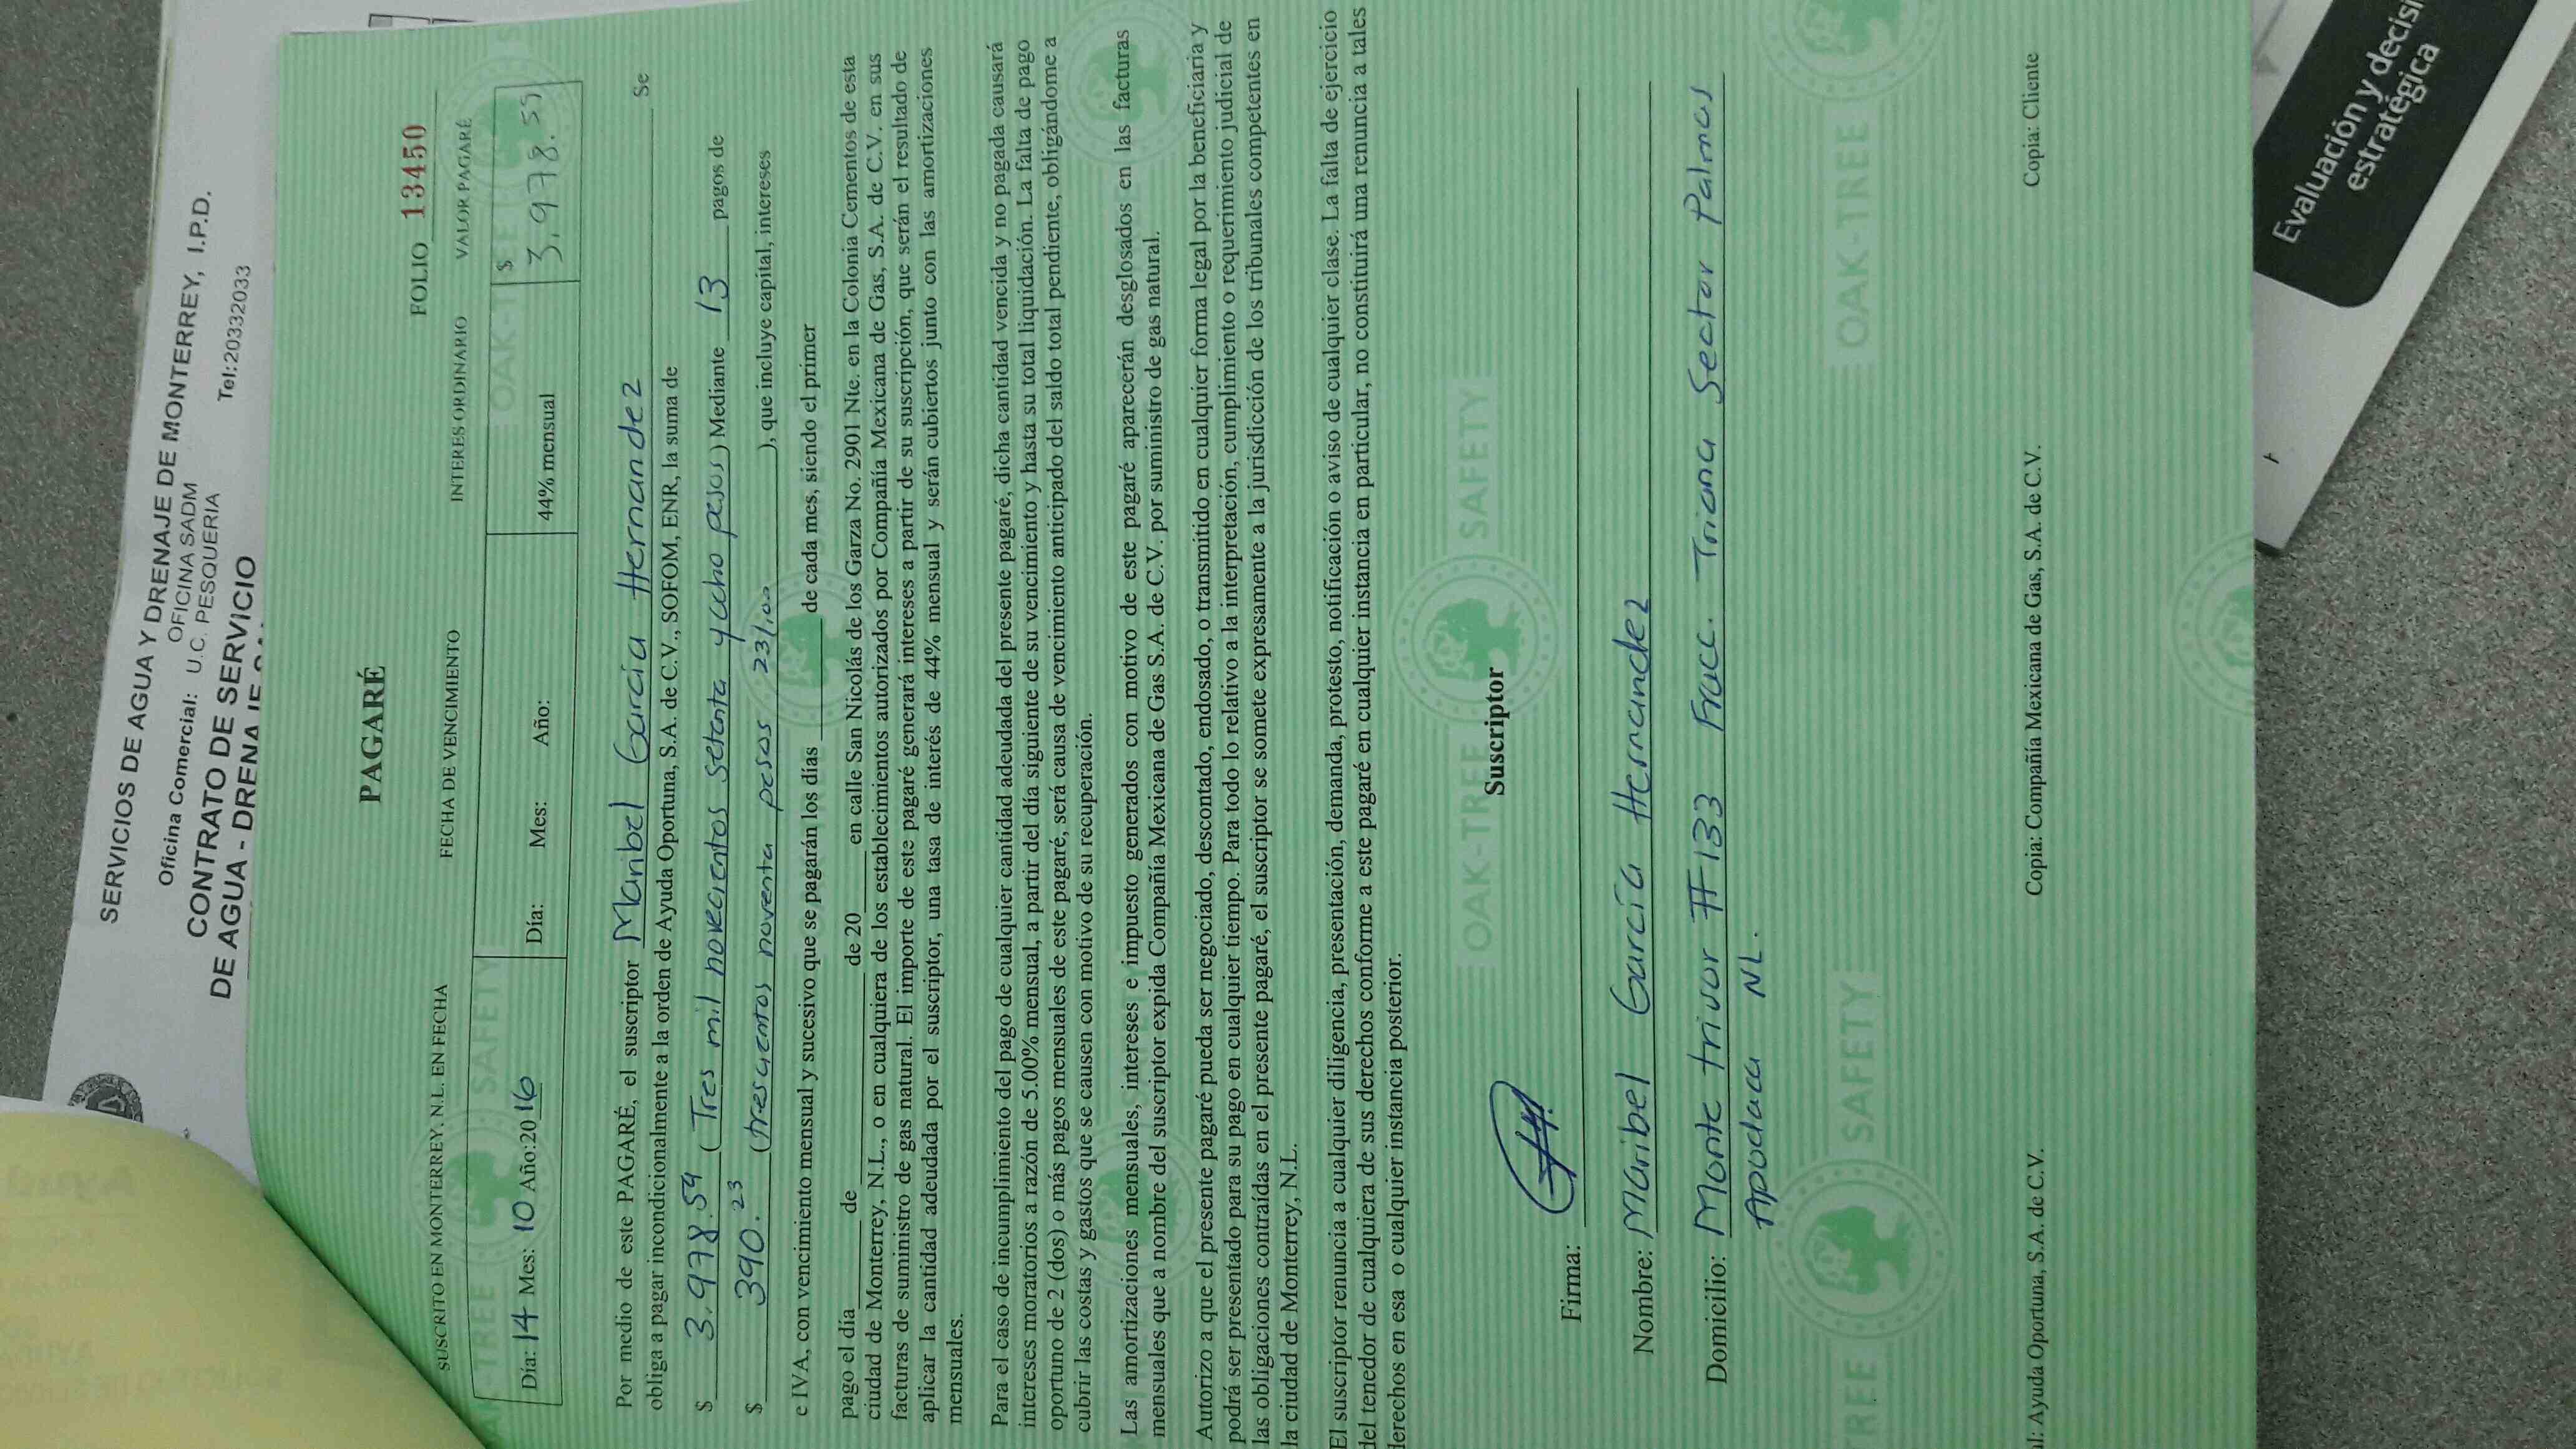 SERVICIOS DE AGUA Y DRENAJE DE MONTERREY, I.P.D.
OFICINA SADM
Oficina Comercial: U.C. PESQUERIA
Tel:20332033
CONTRATO DE SERVICIO
DE AGUA - DRENAJE
PAGARÉ
FOLIO 13450
SUSCRITO EN MONTERREY, N.L. EN FECHA FECHA DE VENCIMIENTO INTERES ORDINARIO VALOR PAGARÉ
Día: 14 Mes: 10 Año:2016 Día: Mes: Año: 44% mensual $ 3,978.59
Por medio de este PAGARÉ, el suscriptor Maribel García Hernandez Se
obliga a pagar incondicionalmente a la orden de Ayuda Oportuna, S.A. de C.V., SOFOM, ENR, la suma de
$ 3,978.59 (Tres mil novecientos setenta y ocho pesos) Mediante 13 pagos de
$ 390.23 (trescientos noventa pesos 23/100 ), que incluye capital, intereses
e IVA, con vencimiento mensual y sucesivo que se pagarán los días de cada mes, siendo el primer
pago el día de de 20 en calle San Nicolás de los Garza No. 2901 Nte. en la Colonia Cementos de esta
ciudad de Monterrey, N.L., o en cualquiera de los establecimientos autorizados por Compañía Mexicana de Gas, S.A. de C.V. en sus
facturas de suministro de gas natural. El importe de este pagaré generará intereses a partir de su suscripción, que serán el resultado de
aplicar la cantidad adeudada por el suscriptor, una tasa de interés de 44% mensual y serán cubiertos junto con las amortizaciones
mensuales.
Para el caso de incumplimiento del pago de cualquier cantidad adeudada del presente pagaré, dicha cantidad vencida y no pagada causará
intereses moratorios a razón de 5.00% mensual, a partir del día siguiente de su vencimiento y hasta su total liquidación. La falta de pago
oportuno de 2 (dos) o más pagos mensuales de este pagaré, será causa de vencimiento anticipado del saldo total pendiente, obligándome a
cubrir las costas y gastos que se causen con motivo de su recuperación.
Las amortizaciones mensuales, intereses e impuesto generados con motivo de este pagaré aparecerán desglosados en las facturas
mensuales que a nombre del suscriptor expida Compañía Mexicana de Gas S.A. de C.V. por suministro de gas natural.
Autorizo a que el presente pagaré pueda ser negociado, descontado, endosado, o transmitido en cualquier forma legal por la beneficiaria y
podrá ser presentado para su pago en cualquier tiempo. Para todo lo relativo a la interpretación, cumplimiento o requerimiento judicial de
las obligaciones contraídas en el presente pagaré, el suscriptor se somete expresamente a la jurisdicción de los tribunales competentes en
la ciudad de Monterrey, N.L.
El suscriptor renuncia a cualquier diligencia, presentación, demanda, protesto, notificación o aviso de cualquier clase. La falta de ejercicio
del tenedor de cualquiera de sus derechos conforme a este pagaré en cualquier instancia en particular, no constituirá una renuncia a tales
derechos en esa o cualquier instancia posterior.
OAK-TREE SAFETY
Suscriptor
Firma:
Nombre: Maribel García Hernandez
Domicilio: Monte trivor #133 Fracc. Triana Sector Palmas
Apodaca NL.
TREE SAFETY OAK-TREE
Ayuda Oportuna, S.A. de C.V. Copia: Compañía Mexicana de Gas, S.A. de C.V. Copia: Cliente
Evaluación y decisi
estratégica